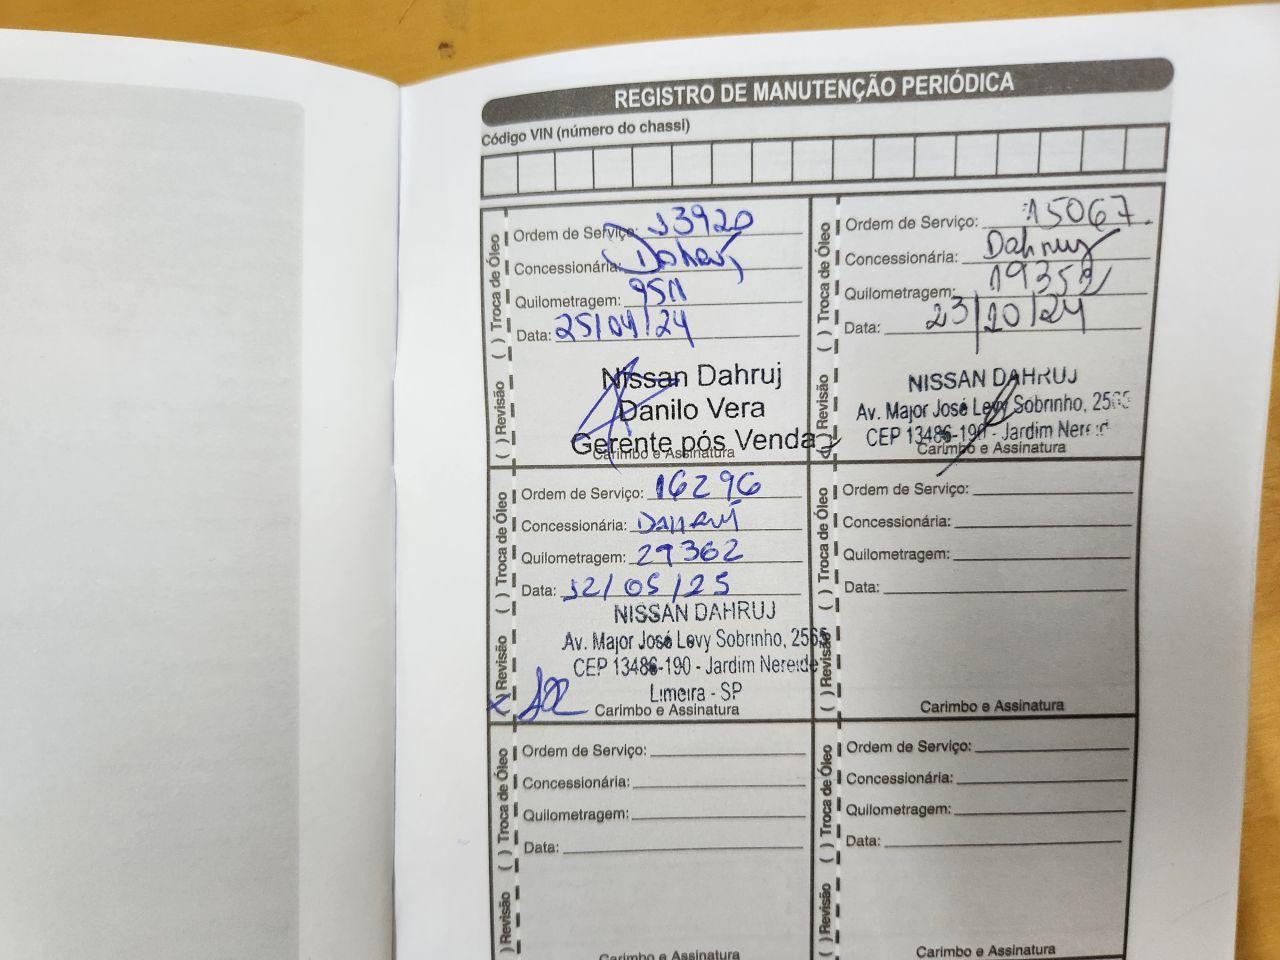 REGISTRO DE MANUTENÇÃO PERIÓDICA
Código VIN (número do chassi)
( ) Revisão ( ) Troca de Óleo
Ordem de Serviço: 13920
Concessionária: Dahruj
Quilometragem: 9511
Data: 25/04/24
Nissan Dahruj
Danilo Vera
Gerente pós Venda
Carimbo e Assinatura
( ) Revisão ( ) Troca de Óleo
Ordem de Serviço: 15067
Concessionária: Dahruj
Quilometragem:
Data: 23/10/24
NISSAN DAHRUJ
Av. Major José Levy Sobrinho, 2565
CEP 13486-190 - Jardim Nereide
Carimbo e Assinatura
(X) Revisão ( ) Troca de Óleo
Ordem de Serviço: 16296
Concessionária: DAHRUJ
Quilometragem: 29362
Data: 12/05/25
NISSAN DAHRUJ
Av. Major José Levy Sobrinho, 2565
CEP 13486-190 - Jardim Nereide
Limeira - SP
Carimbo e Assinatura
( ) Revisão ( ) Troca de Óleo
Ordem de Serviço:
Concessionária:
Quilometragem:
Data:
Carimbo e Assinatura
) Revisão ( ) Troca de Óleo
Ordem de Serviço:
Concessionária:
Quilometragem:
Data:
Carimbo e Assinatura
( ) Revisão ( ) Troca de Óleo
Ordem de Serviço:
Concessionária:
Quilometragem:
Data:
Carimbo e Assinatura